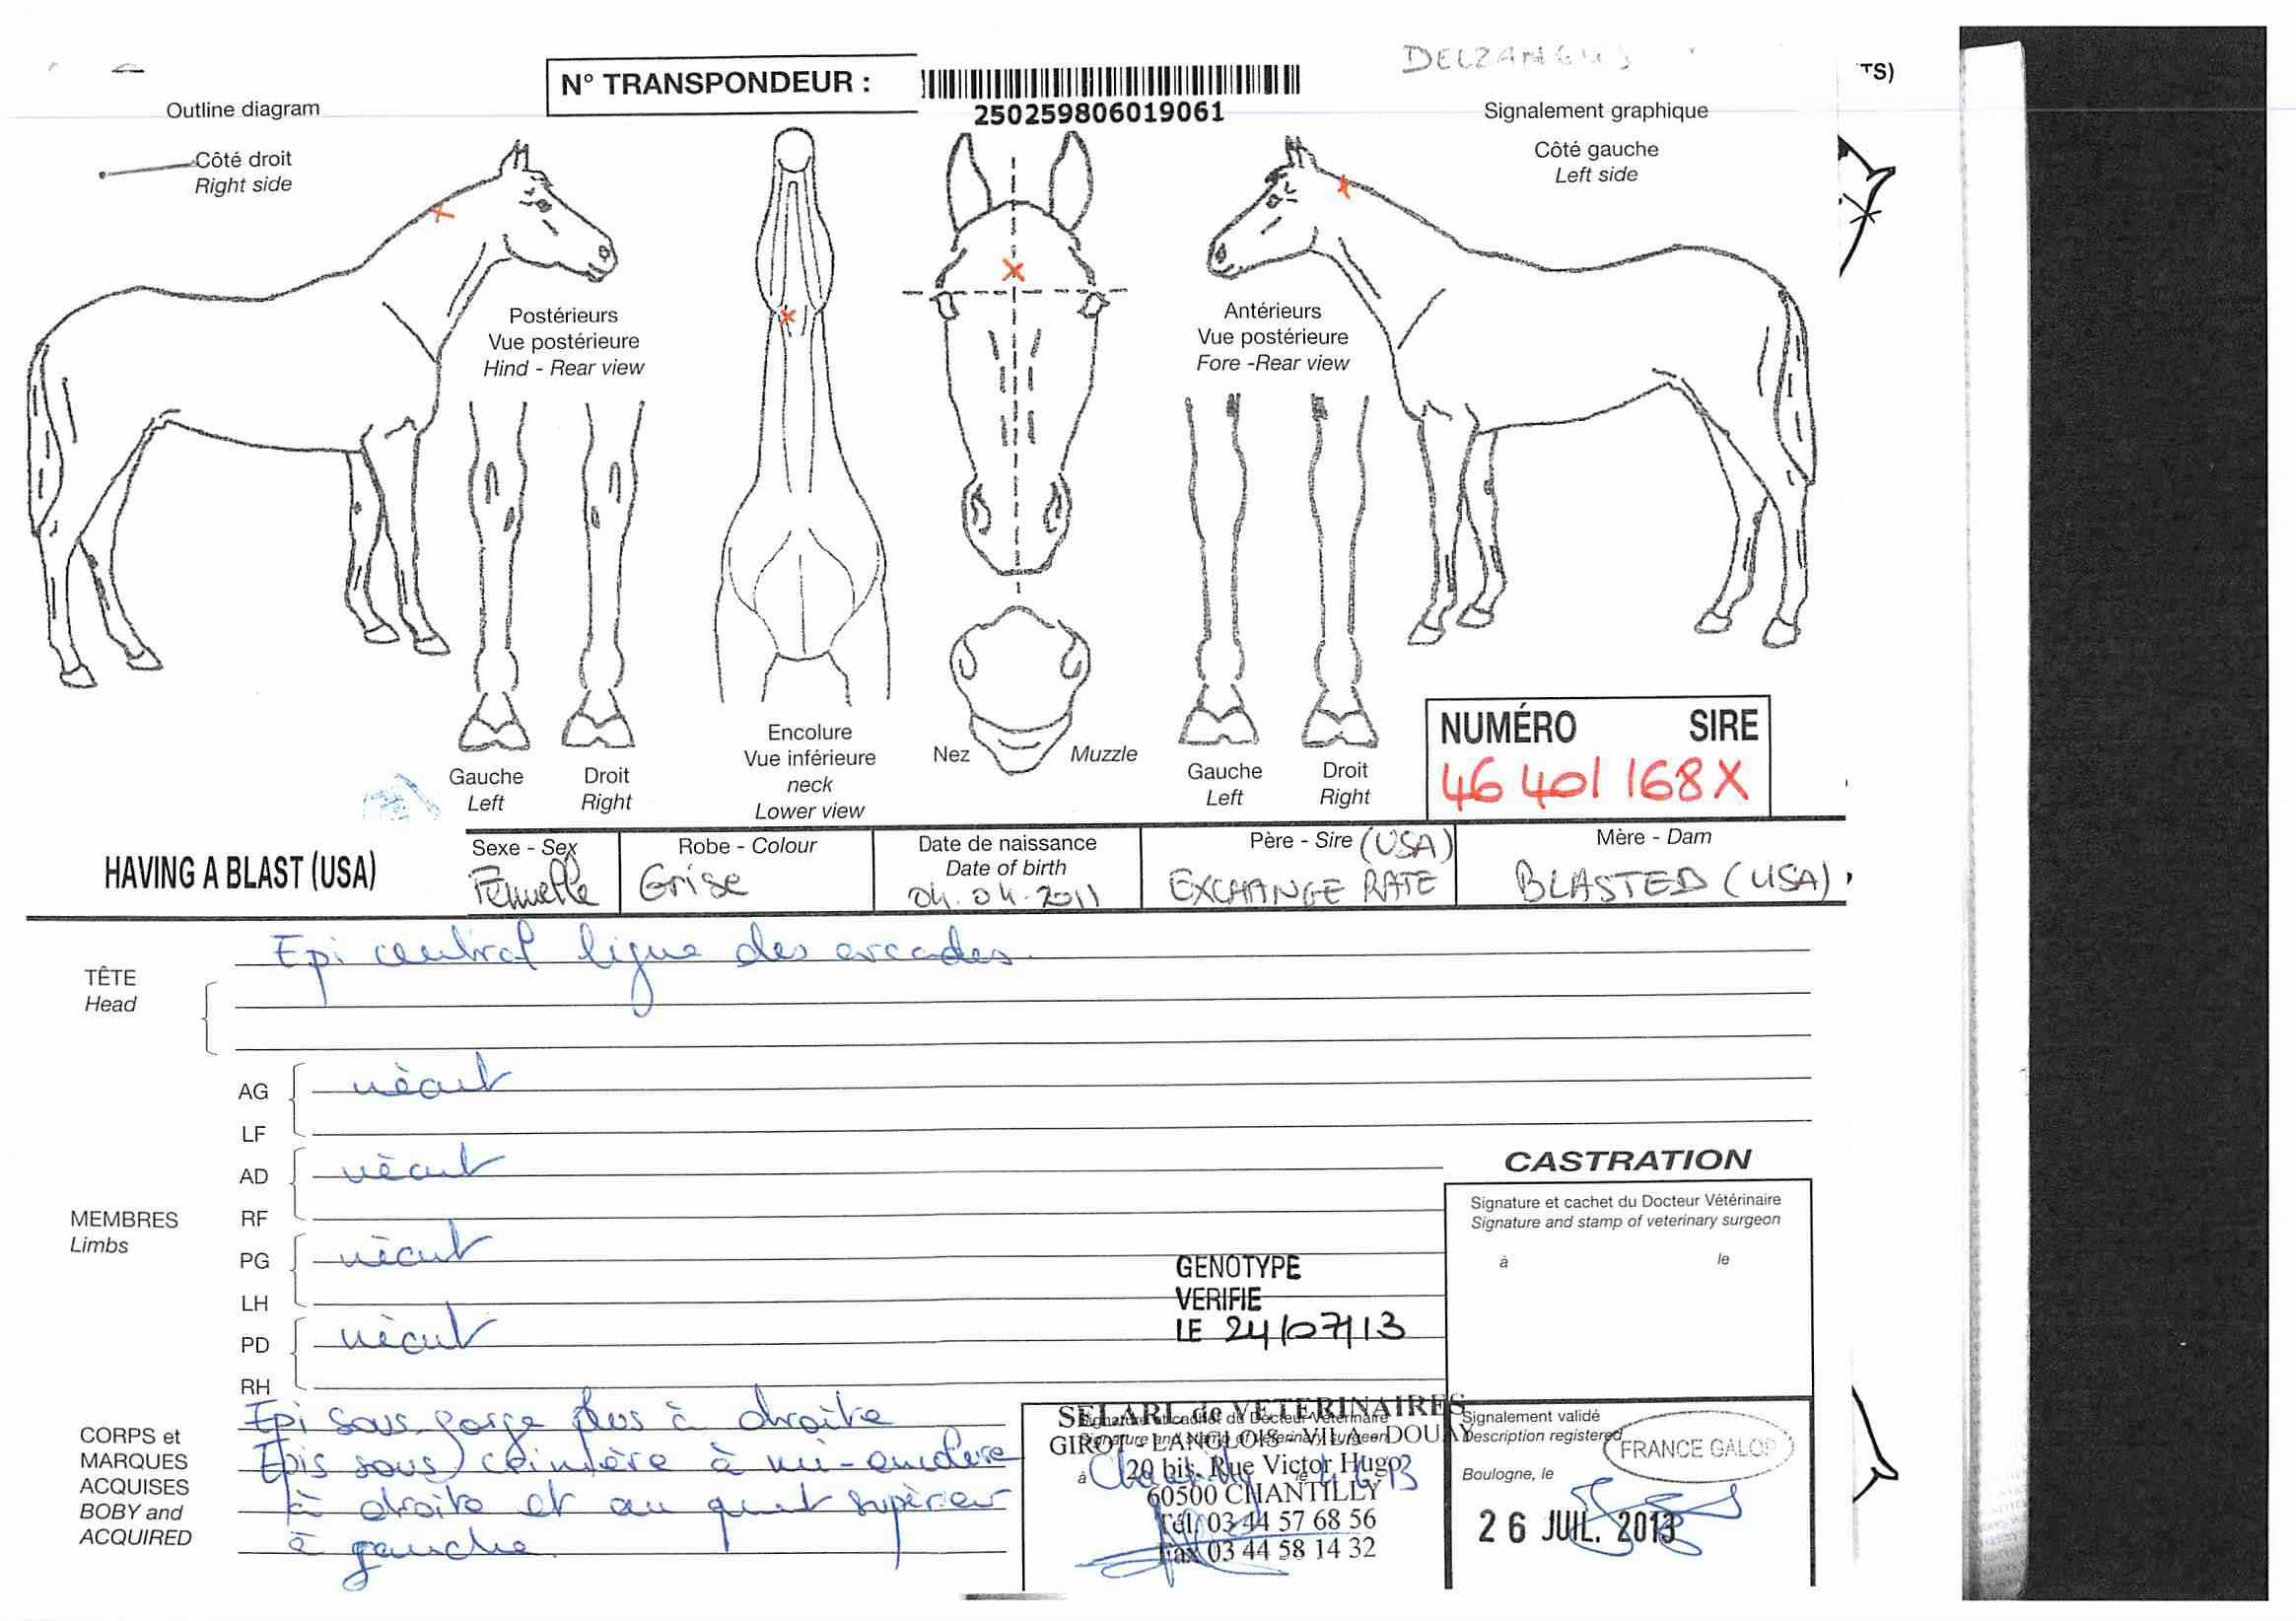 DELZANGLES
N° TRANSPONDEUR :
250259806019061
TS)
Outline diagram
Signalement graphique
Côté droit
Right side
Côté gauche
Left side
Postérieurs
Vue postérieure
Hind - Rear view
Antérieurs
Vue postérieure
Fore -Rear view
Encolure
Vue inférieure
neck
Lower view
Nez
Muzzle
Gauche
Left
Droit
Right
Gauche
Left
Droit
Right
NUMÉRO SIRE
46 401 168X
HAVING A BLAST (USA)
Sexe - Sex
Femelle
Robe - Colour
Grise
Date de naissance
Date of birth
04.04.2011
Père - Sire (USA)
EXCHANGE RATE
Mère - Dam
BLASTED (USA)
TÊTE
Head
Epi central ligne des arcades.
MEMBRES
Limbs
AG
LF
néant
AD
RF
néant
PG
LH
néant
PD
RH
néant
GENOTYPE
VERIFIE
LE 24/07/13
CASTRATION
Signature et cachet du Docteur Vétérinaire
Signature and stamp of veterinary surgeon
à le
CORPS et
MARQUES
ACQUISES
BOBY and
ACQUIRED
Epi sous gorge plus à droite
Epis sous crinière à mi-encolure
à droite et au quart supérieur
à gauche.
Signature et cachet du Docteur Vétérinaire
Signature and stamp of veterinary surgeon
SELARL de VETERINAIRES
GIROT - LANGLOIS - VILA - DOUAY
20 bis, Rue Victor Hugo
60500 CHANTILLY
Tél. 03 44 57 68 56
Fax 03 44 58 14 32
à Chantilly le
Signalement validé
Description registered
FRANCE GALOP
Boulogne, le
26 JUIL. 2013